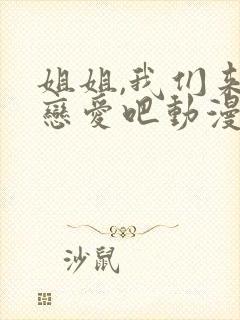 姐姐,我们来
戀爱吧動漫
沙鼠